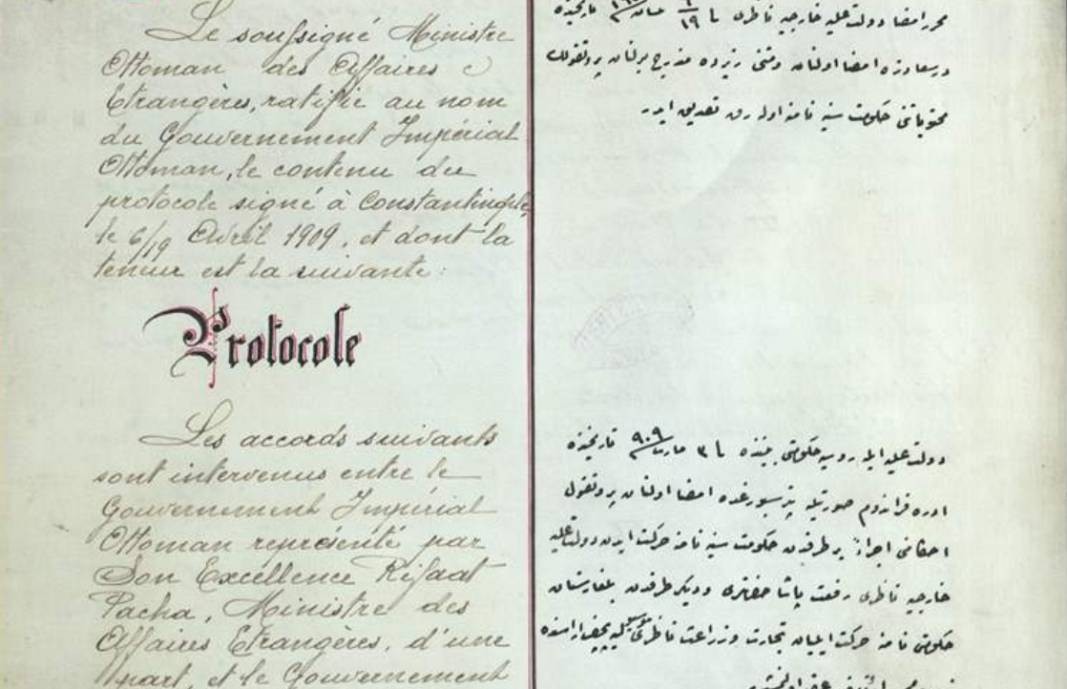 Le soussigné Ministre
Ottoman des Affaires
Etrangères, ratifie au nom
du Gouvernement Impérial
Ottoman, le contenu du
protocole signé à Constantinople,
le 6/19 Avril 1909, et dont la
teneur est la suivante:
Protocole
Les accords suivants
sont intervenus entre le
Gouvernement Impérial
Ottoman représenté par
Son Excellence Rifaat
Pacha, Ministre des
Affaires Etrangères, d'une
part, et le Gouvernement
محرر امضا دولت عليه خارجيه ناظرى
درسعادتده امضا اولنان ومتنى زيرده مندرج بولنان پروتوقولك
محتوياتنى حكومت سنيه نامنه اوله رق تصديق ايدر
دولت عليه ايله روسيه حكومتى بيننده ٣ مارت ٩٠٩ تاريخنده
پترسبورغده امضا اولنان پروتوقول
احكامنى اجراءً بر طرفدن حكومت سنيه نامنه حركت ايدن دولت عليه
خارجيه ناظرى رفعت پاشا حضرتلرى وديكر طرفدن بلغارستان
حكومتى نامنه حركت ايليان تجارت وزراعت ناظرى